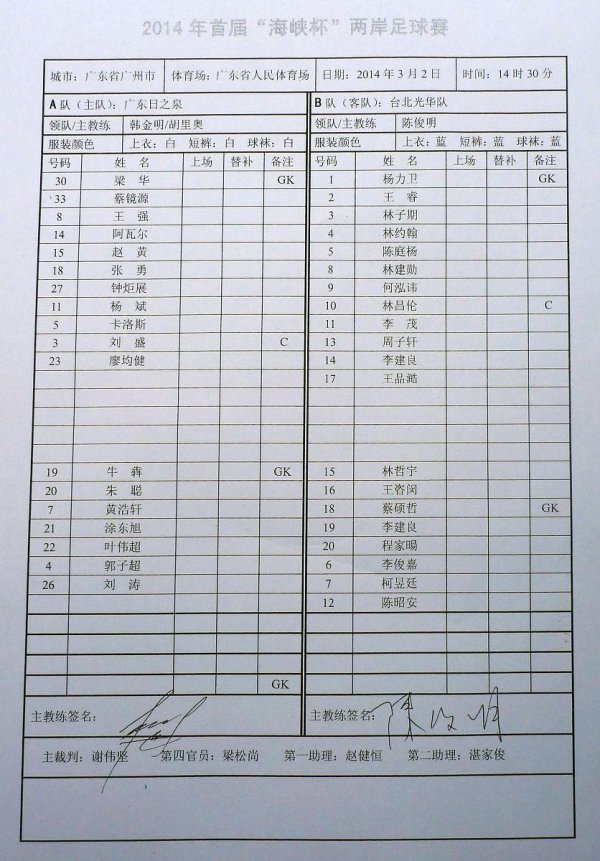 2014 年首届“海峡杯”两岸足球赛
城市：广东省广州市 体育场：广东省人民体育场 日期：2014 年 3 月 2 日 时间：14 时 30 分
A 队（主队）：广东日之泉 B 队（客队）：台北光华队
领队/主教练 韩金明/胡里奥 领队/主教练 陈俊明
服装颜色 上衣：白 短裤：白 球袜：白 服装颜色 上衣：蓝 短裤：蓝 球袜：蓝
号码 姓 名 上场 替补 备注 号码 姓 名 上场 替补 备注
30 梁 华 GK 1 杨力卫 GK
33 蔡镜源 2 王 睿
8 王 强 3 林子期
14 阿瓦尔 4 林约翰
15 赵 黄 5 陈庭杨
18 张 勇 8 林建勋
27 钟炬展 9 何泓讳
11 杨 斌 10 林昌伦 C
5 卡洛斯 11 李 茂
3 刘 盛 C 13 周子轩
23 廖均健 14 李建良
17 王品澔
19 牛 犇 GK 15 林哲宇
20 朱 聪 16 王咨闵
7 黄浩轩 18 蔡硕哲 GK
21 涂东旭 19 李建良
22 叶伟超 20 程家暘
4 郭子超 6 李俊嘉
26 刘 涛 7 柯昱廷
12 陈昭安
GK
主教练签名： 主教练签名：陈俊明
主裁判：谢伟坚 第四官员：梁松尚 第一助理：赵健恒 第二助理：湛家俊